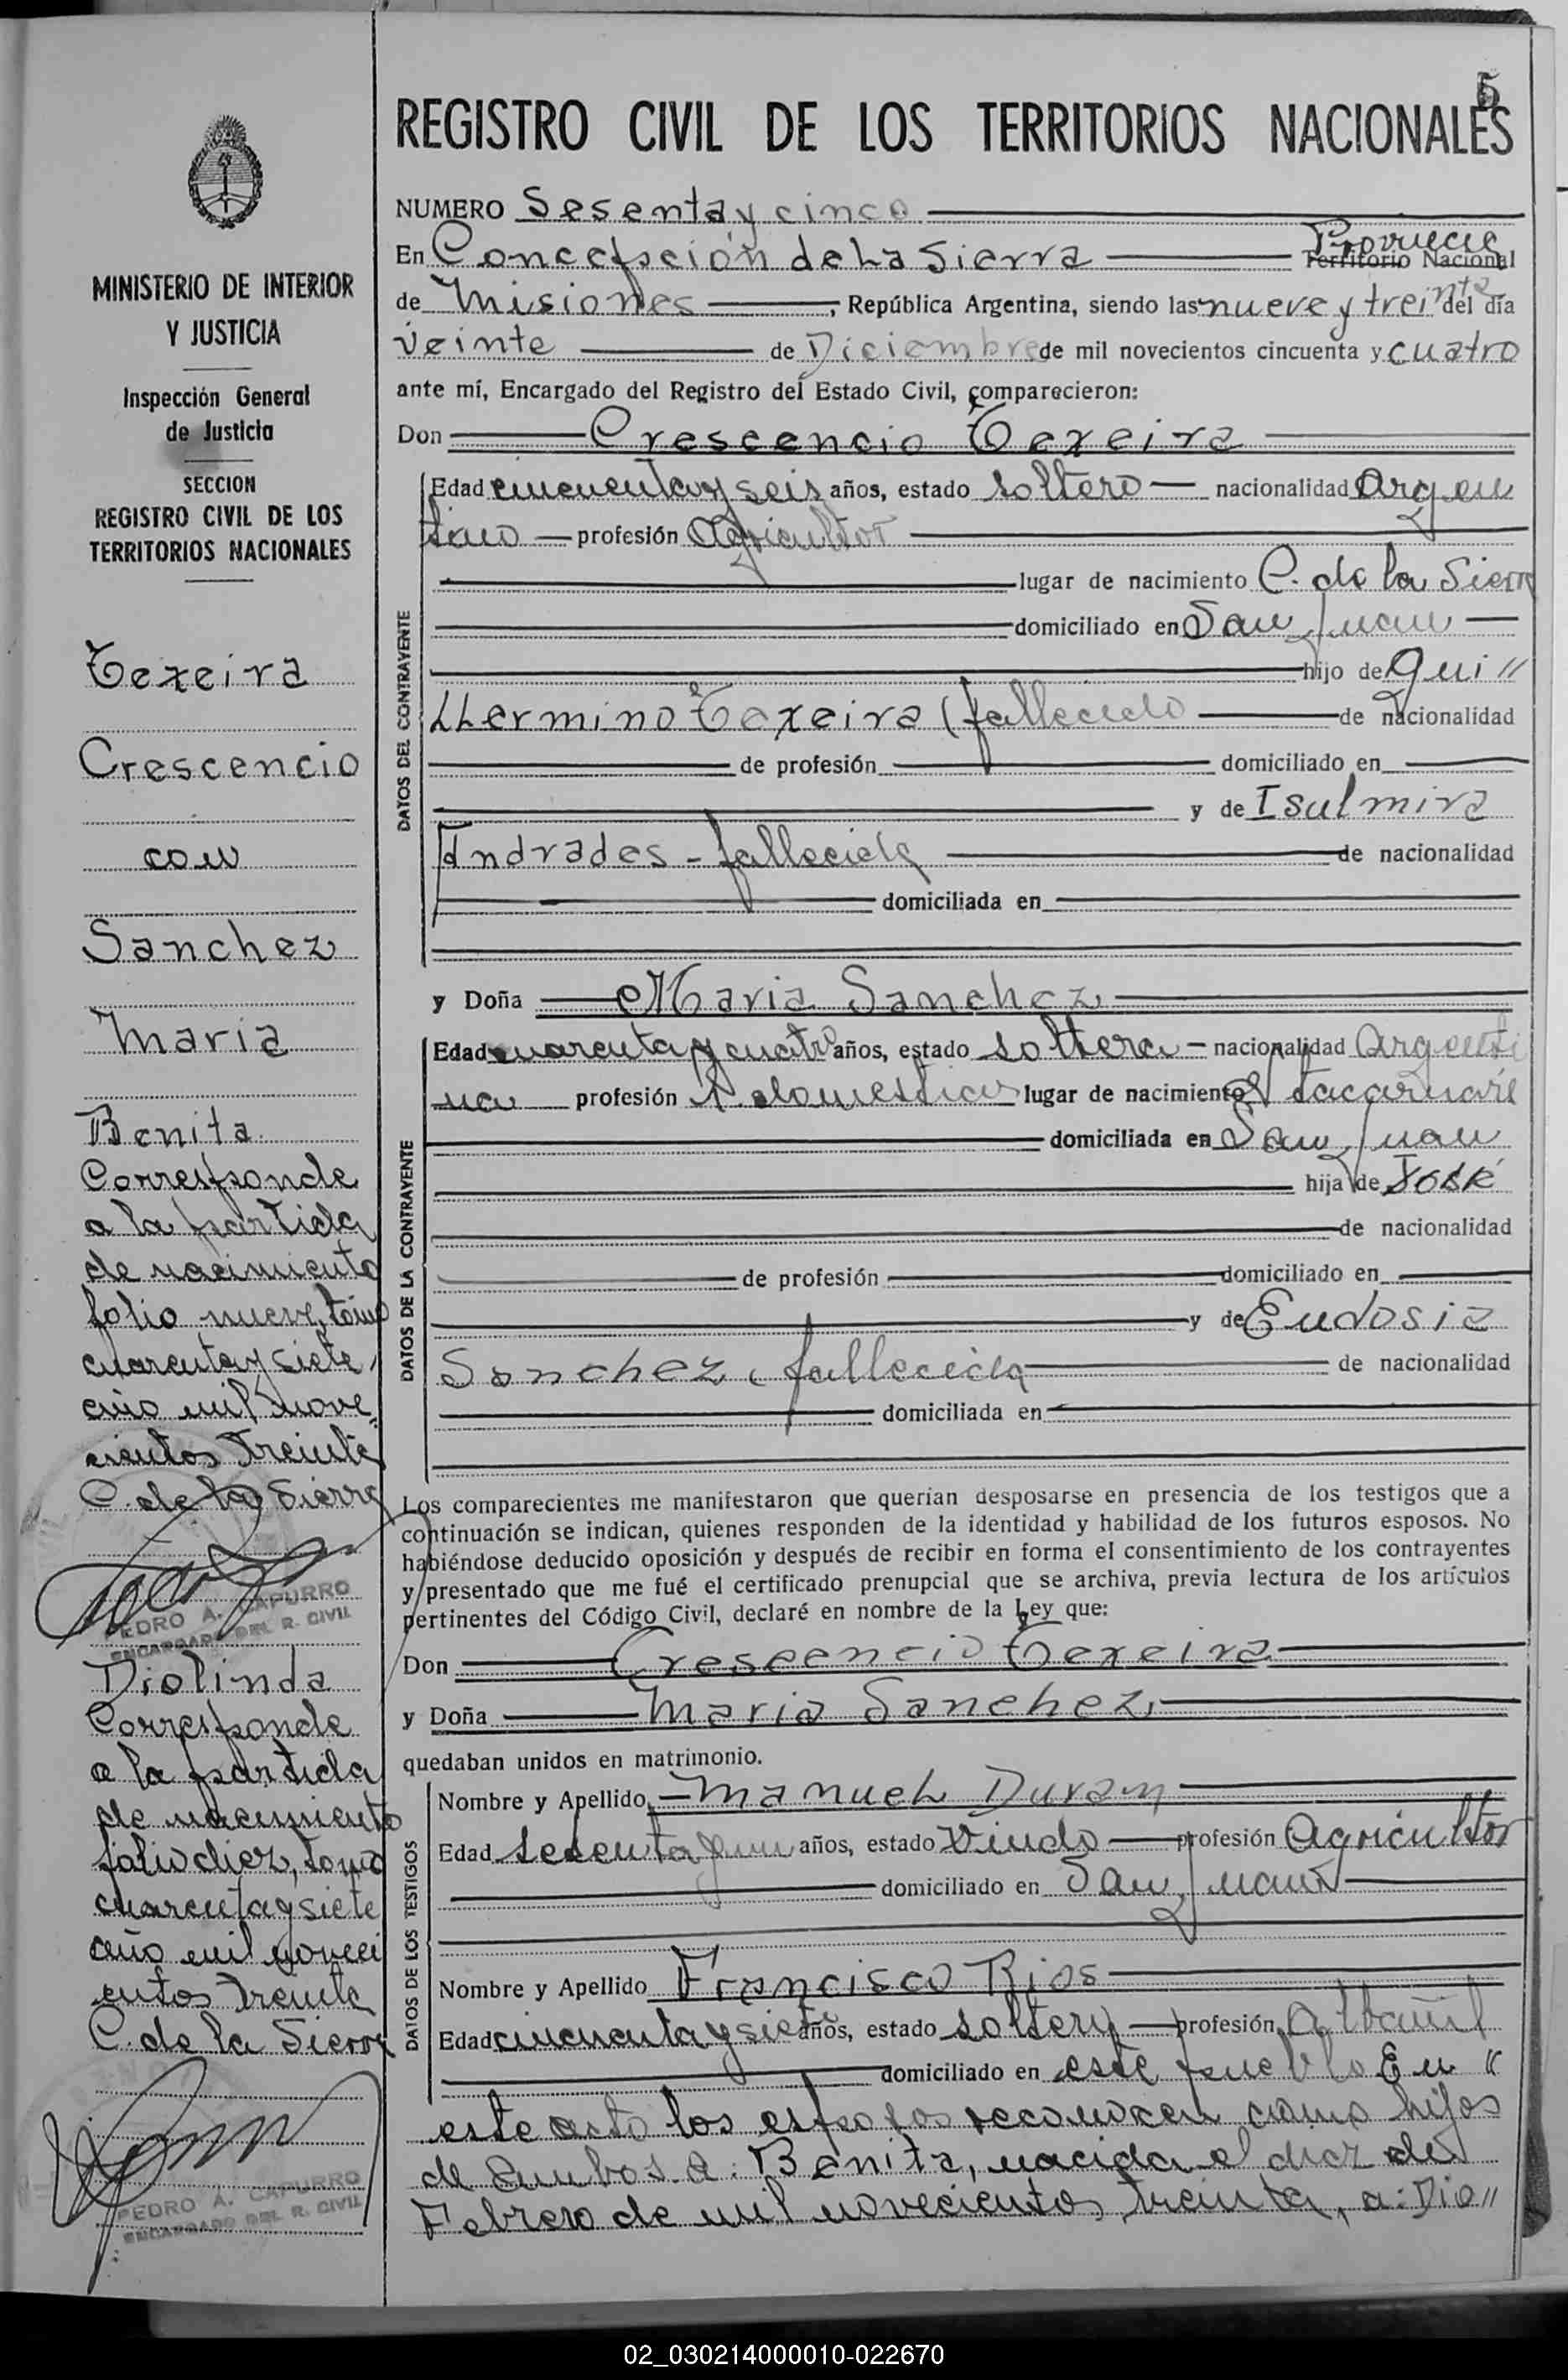 5
REGISTRO CIVIL DE LOS TERRITORIOS NACIONALES
MINISTERIO DE INTERIOR
Y JUSTICIA
Inspección General
de Justicia
SECCION
REGISTRO CIVIL DE LOS
TERRITORIOS NACIONALES
Texeira
Crescencio
con
Sanchez
Maria
Benita
Corresponde
a la partida
de nacimiento
folio nueve, tomo
cuarenta y siete,
año mil nove"
cientos treinta
C. de la Sierra
PEDRO A. CAPURRO
ENCARGADO DEL R. CIVIL
Diolinda
Corresponde
a la partida
de nacimiento
folio diez, tomo
cuarenta y siete
año mil noveci
entos treinta
C. de la Sierra
PEDRO A. CAPURRO
ENCARGADO DEL R. CIVIL
NUMERO Sesenta y cinco
En Concepción de La Sierra Provincia Territorio Nacional
de Misiones, República Argentina, siendo las nueve y treinta del día
veinte de Diciembre de mil novecientos cincuenta y cuatro
ante mí, Encargado del Registro del Estado Civil, comparecieron:
Don Crescencio Texeira
DATOS DEL CONTRAYENTE
Edad cincuenta y seis años, estado soltero nacionalidad Argen
tino profesión Agricultor
lugar de nacimiento C. de la Sierra
domiciliado en San Juan
hijo de Gui "
LLermino Texeira (fallecido de nacionalidad
de profesión domiciliado en
y de Isulmira
Andrades - fallecida de nacionalidad
domiciliada en
y Doña Maria Sanchez
DATOS DE LA CONTRAYENTE
Edad cuarenta y cuatro años, estado soltera nacionalidad Argenti
na profesión s. domesticos lugar de nacimiento Itacaruaré
domiciliada en San Juan
hija de José
de nacionalidad
de profesión domiciliado en
y de Eudosia
Sanchez, fallecida de nacionalidad
domiciliada en
Los comparecientes me manifestaron que querían desposarse en presencia de los testigos que a
continuación se indican, quienes responden de la identidad y habilidad de los futuros esposos. No
habiéndose deducido oposición y después de recibir en forma el consentimiento de los contrayentes
y presentado que me fué el certificado prenupcial que se archiva, previa lectura de los artículos
pertinentes del Código Civil, declaré en nombre de la Ley que:
Don Crescencio Texeira
y Doña Maria Sanchez
quedaban unidos en matrimonio.
DATOS DE LOS TESTIGOS
Nombre y Apellido Manuel Duran
Edad sesenta y un años, estado Viudo profesión Agricultor
domiciliado en San Juan
Nombre y Apellido Francisco Rios
Edad cincuenta y siete años, estado soltero profesión Albañil
domiciliado en este pueblo En "
este acto los esposos reconocen como hijos
de ambos a: Benita, nacida el diez de
Febrero de mil novecientos treinta, a: Dio"
02_030214000010-022670